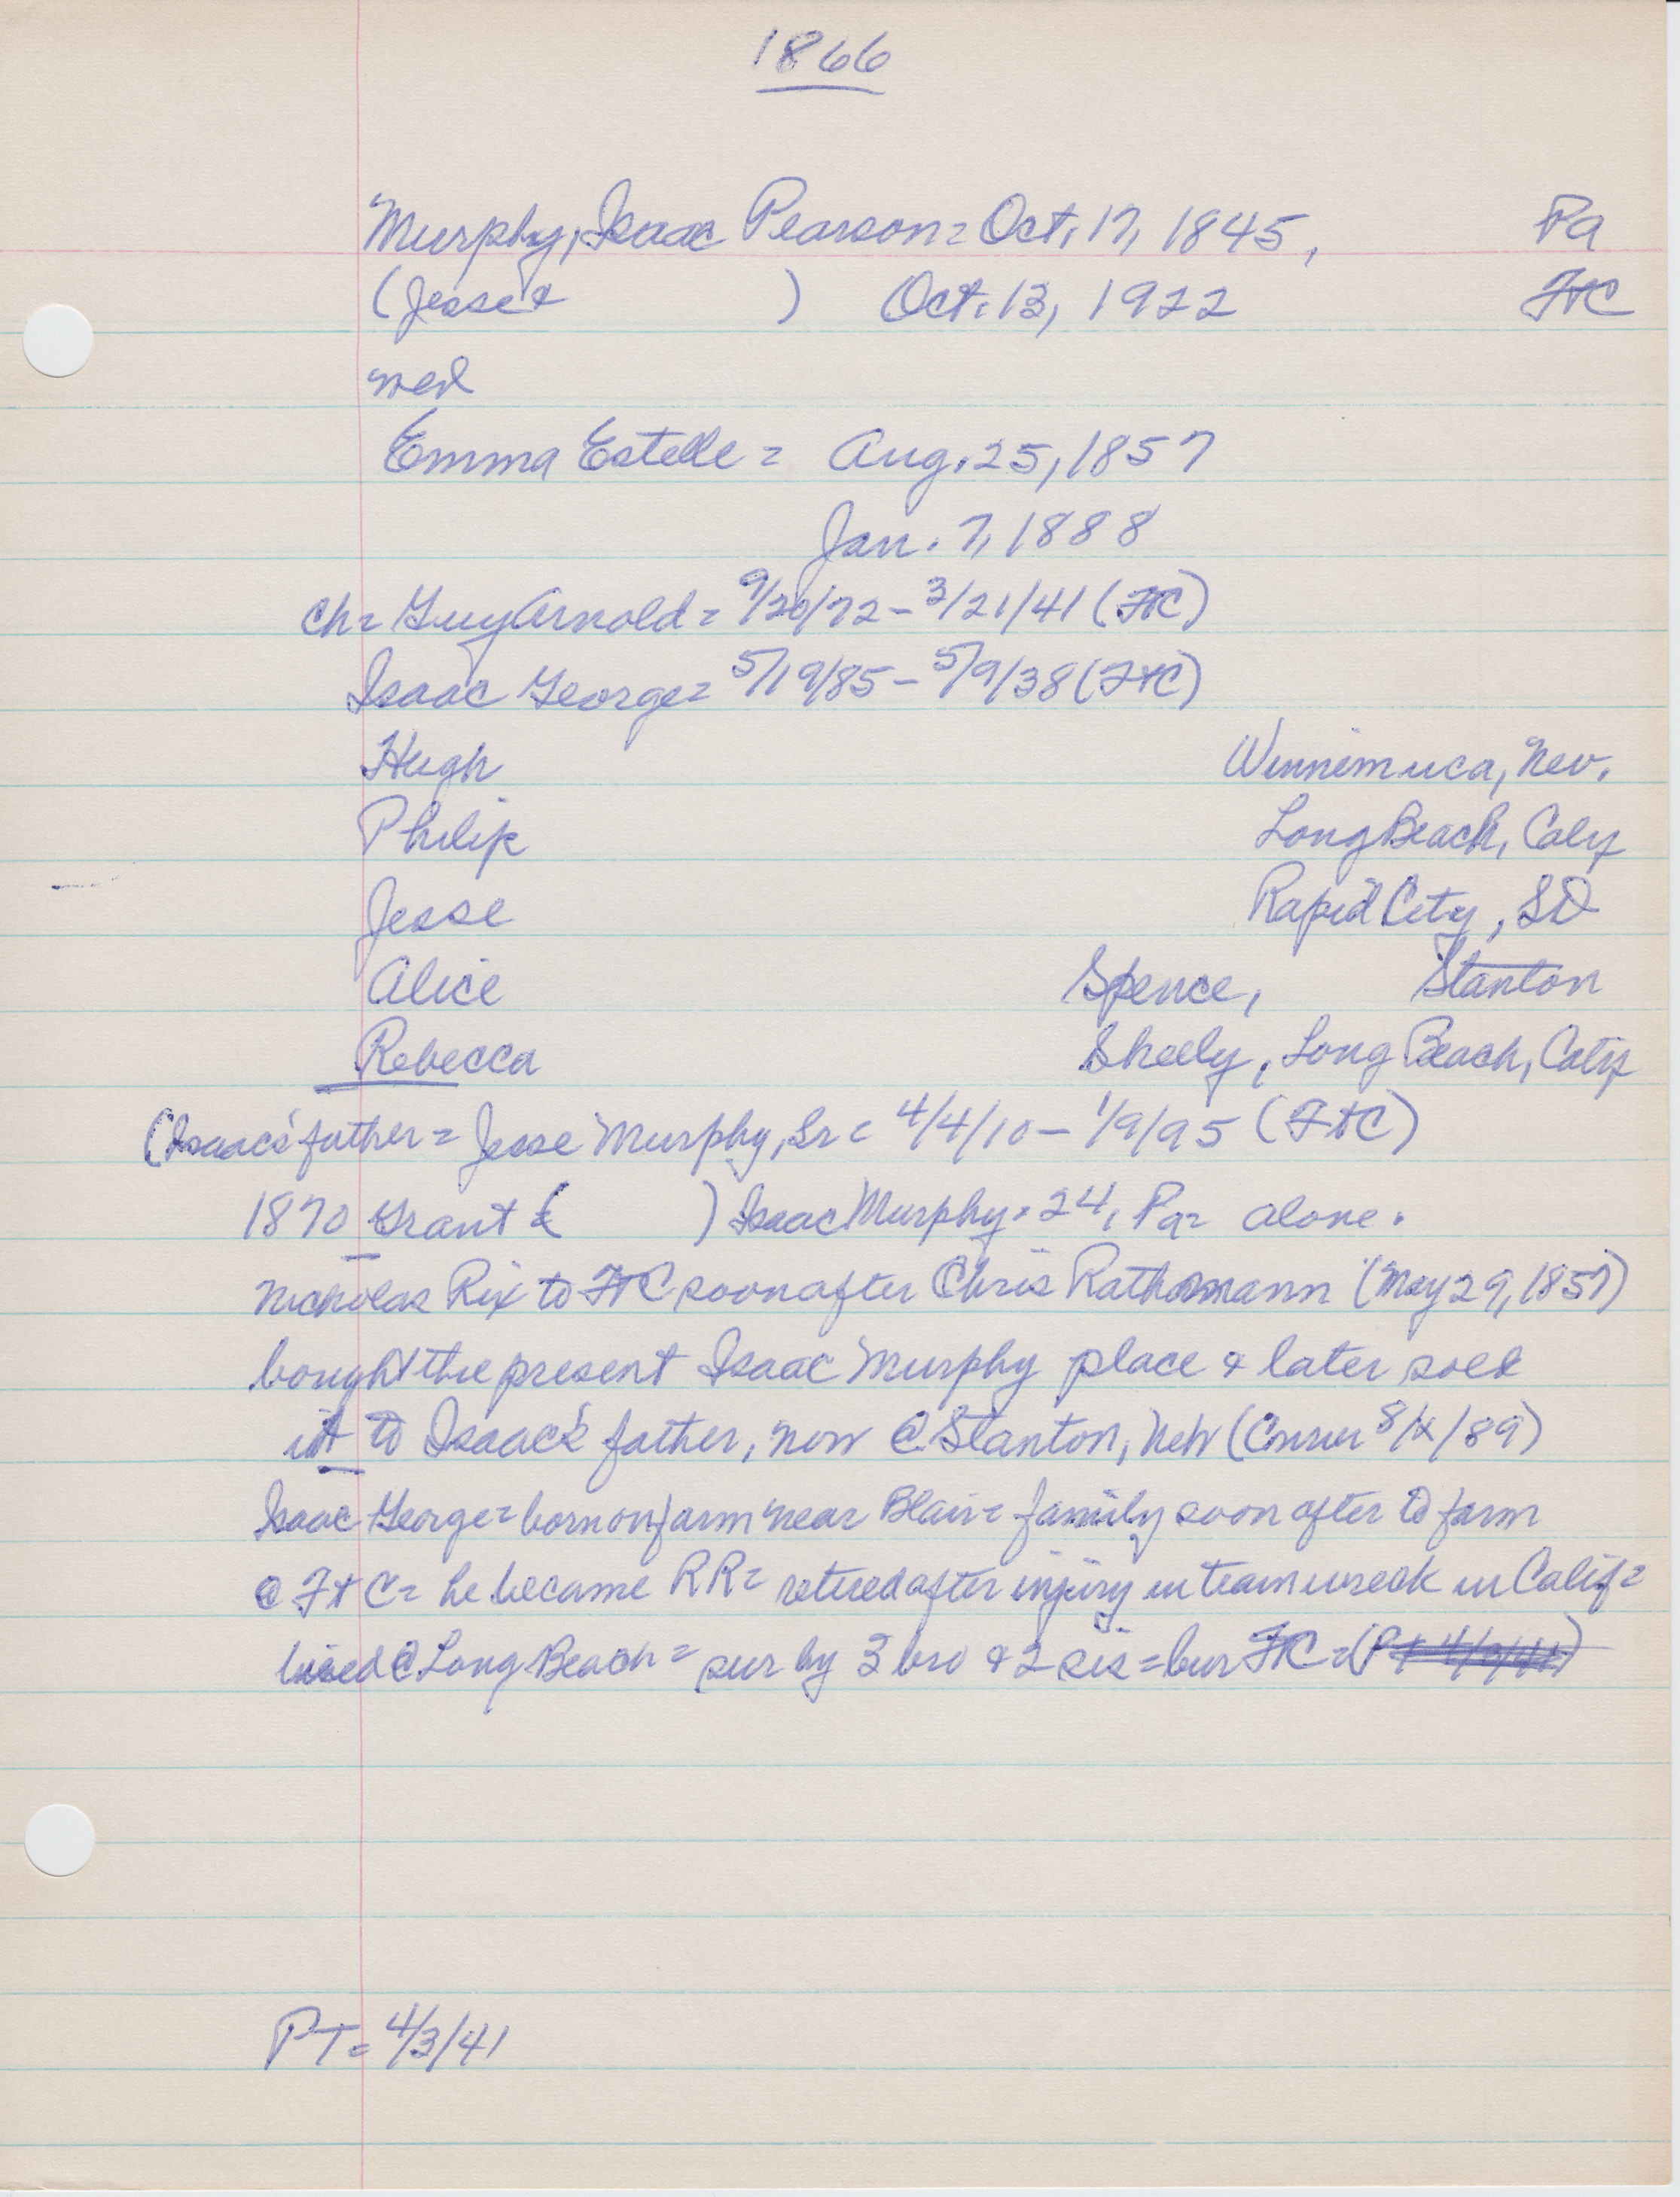 1866
Murphy, Isaac Pearson = Oct. 17, 1845, Pa
(Jesse & ) Oct. 13, 1922 FtC
med
Emma Estelle = Aug. 25, 1857
Jan. 7, 1888
ch = Guy Arnold = 9/20/72 - 3/21/41 (FtC)
Isaac George = 5/19/85 - 5/9/38 (FtC)
Hugh Winnemuca, Nev.
Philip Long Beach, Calif
Jesse Rapid City, SD
Alice Spence, Stanton
Rebecca Sheely, Long Beach, Calif
(Isaac's father = Jesse Murphy, Sr = 4/4/10 - 1/9/95 (FtC)
1870 Grant ( ) Isaac Murphy = 24, Pa = alone.
Nicholas Rix to FtC soon after Chris Rathmann (May 29, 1857)
bought the present Isaac Murphy place & later sold
it to Isaac's father, now @ Stanton, Neb ( 8/ /89)
Isaac George = born on farm near Blair = family soon after to farm
@ FtC = he became RR = retired after injury in team wreck in Calif =
lived @ Long Beach = sur by 3 bro & 2 sis = bur FtC =
PT = 4/3/41